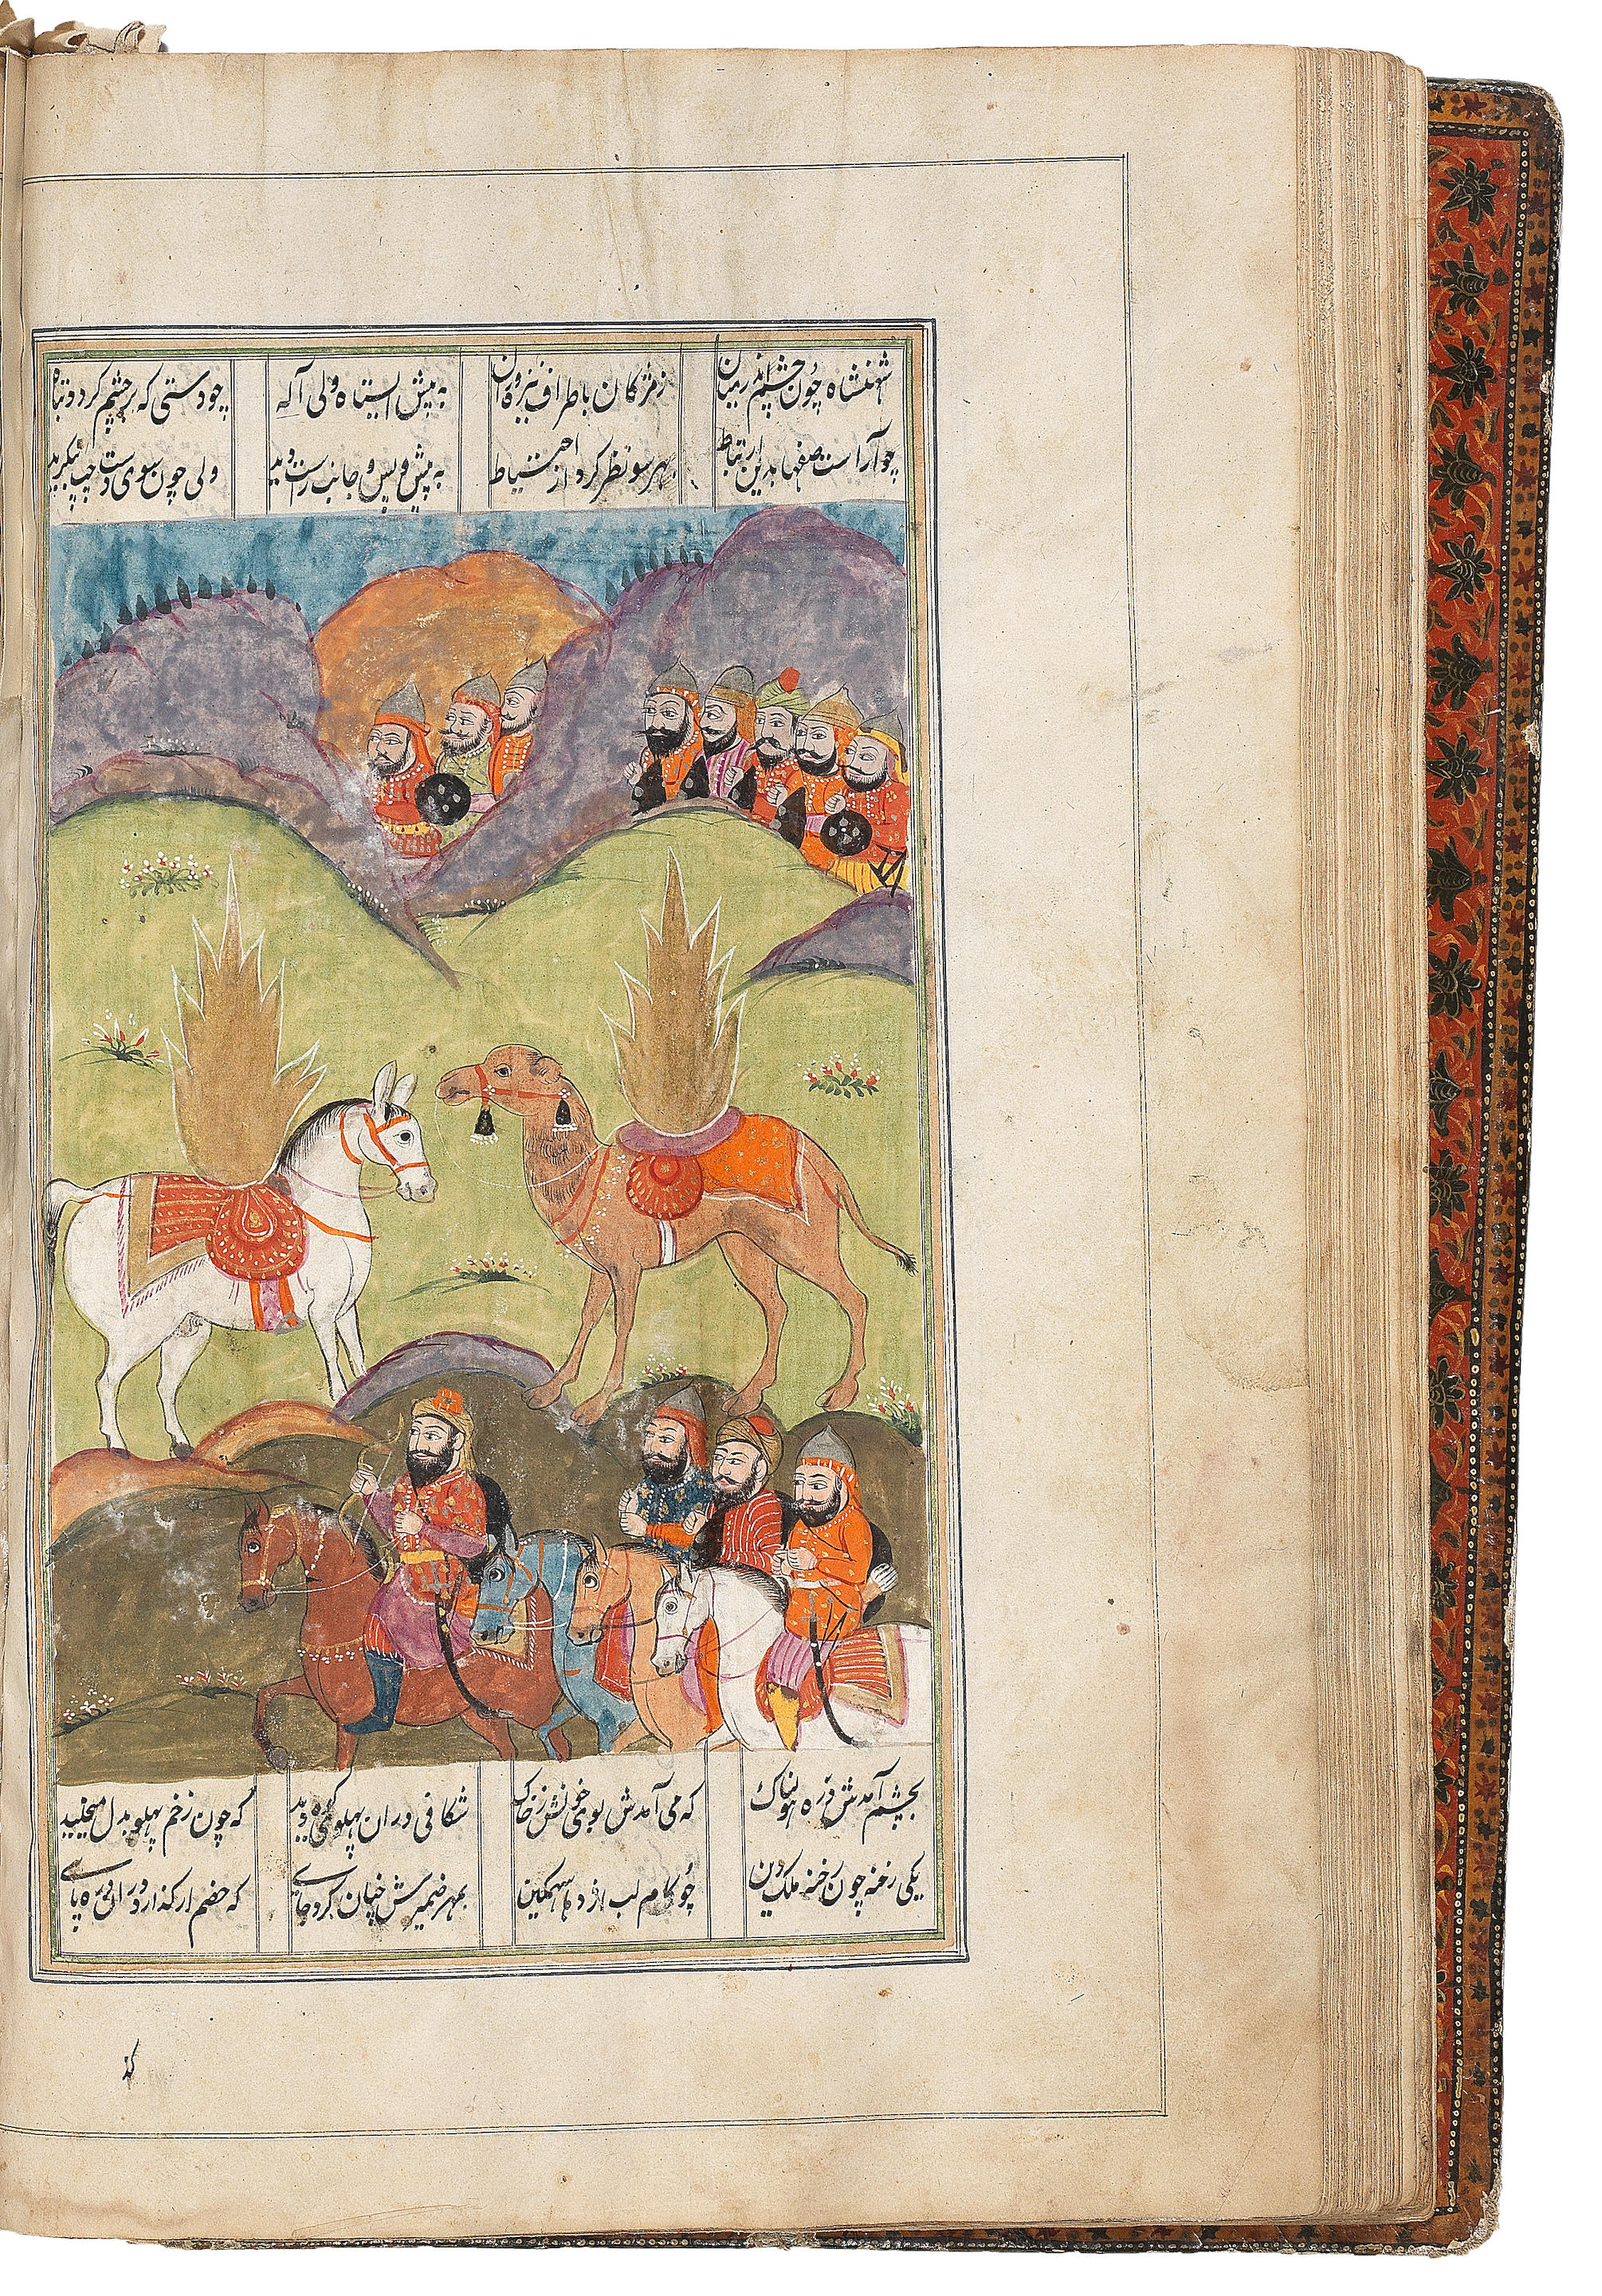 شهنشاه چون چشم اندر میان ز مژگان باطراف نیزه وران به پیش ایستاه ولی آکه چو دستی که بر چشم کرد دوتاه
چو آراست صفها بدین ارتباط بهر سو نظر کرد از احتیاط به پیش و پس و جانب راست دید ولی چون بسوی دست چپ بنگرید
بچشم آمدش دره هولناک که می آمدش بوی خونش ز خاک شکافی در ان پهلوی کوه دید که چون زخم پهلو بدل میخلید
یکی رخنه چون رخنه ملک دین چو کام لب اژدها سهمکین بهر ضمیرش چنان کرد جای که خصم ار کذارد در ان دره پای